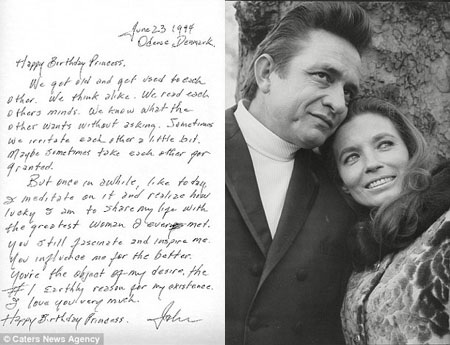 June 23 1994
Odense Denmark.
Happy Birthday Princess.
We got old and get used to each
other. We think alike. We read each
others minds. We know what the
other wants without asking. Sometimes
we irritate each other a little bit.
Maybe sometimes take each other for
granted.
But once in awhile, like today,
I meditate on it and realize how
lucky I am to share my life with
the greatest woman I ever met.
You still fascinate and inspire me.
You influence me for the better.
You're the object of my desire, the
#1 Earthly reason for my existence.
I love you very much.
Happy Birthday Princess.
John
© Caters News Agency